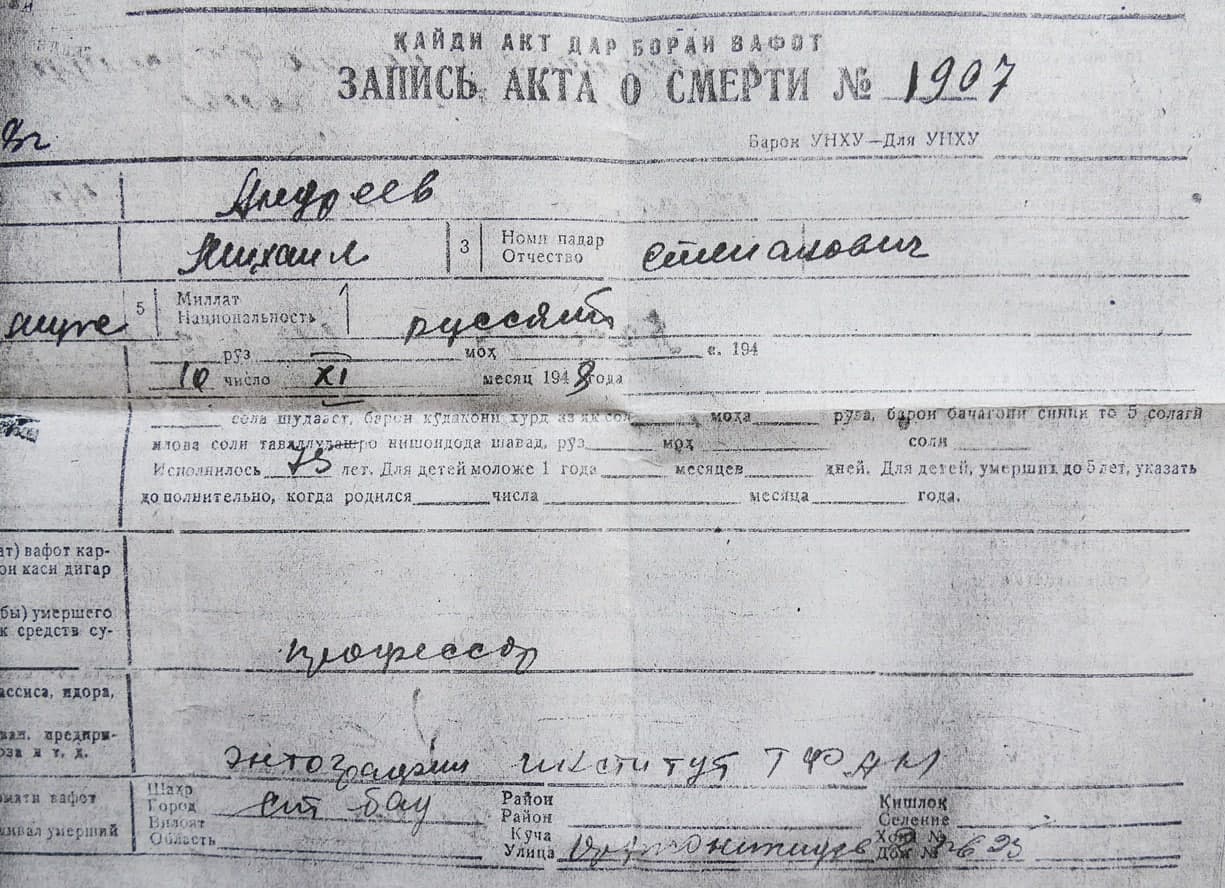 ҚАЙДИ АКТ ДАР БОРАИ ВАФОТ
ЗАПИСЬ АКТА О СМЕРТИ № 1907
Барои УНХУ—Для УНХУ
Андреев
Михаил 3 Номи падар
Отчество Степанович
5 Миллат
Национальность русский
рӯз моҳ с. 194
10 число XI месяц 1948 года
сола шудааст, барои кӯдакони хурд аз як сол моҳа рӯза, барои бачагони синни то 5 солагӣ
илова соли таваллудашро нишондода шавад, рӯз моҳ соли
Исполнилось 75 лет. Для детей моложе 1 года месяцев дней. Для детей, умерших до 5 лет, указать
дополнительно, когда родился числа месяца года.
ат) вафот кар-
он каси дигар
бы) умершего
к средств су-
профессор
ассиса, идора,
предпри-
оза и т. д.
энтография институт ТФАН
вафот Шаҳр
Город Район
Район Кишлоқ
Селение
умерший Вилоят
Область Куча
Улица Хонаи №
Дом № 23